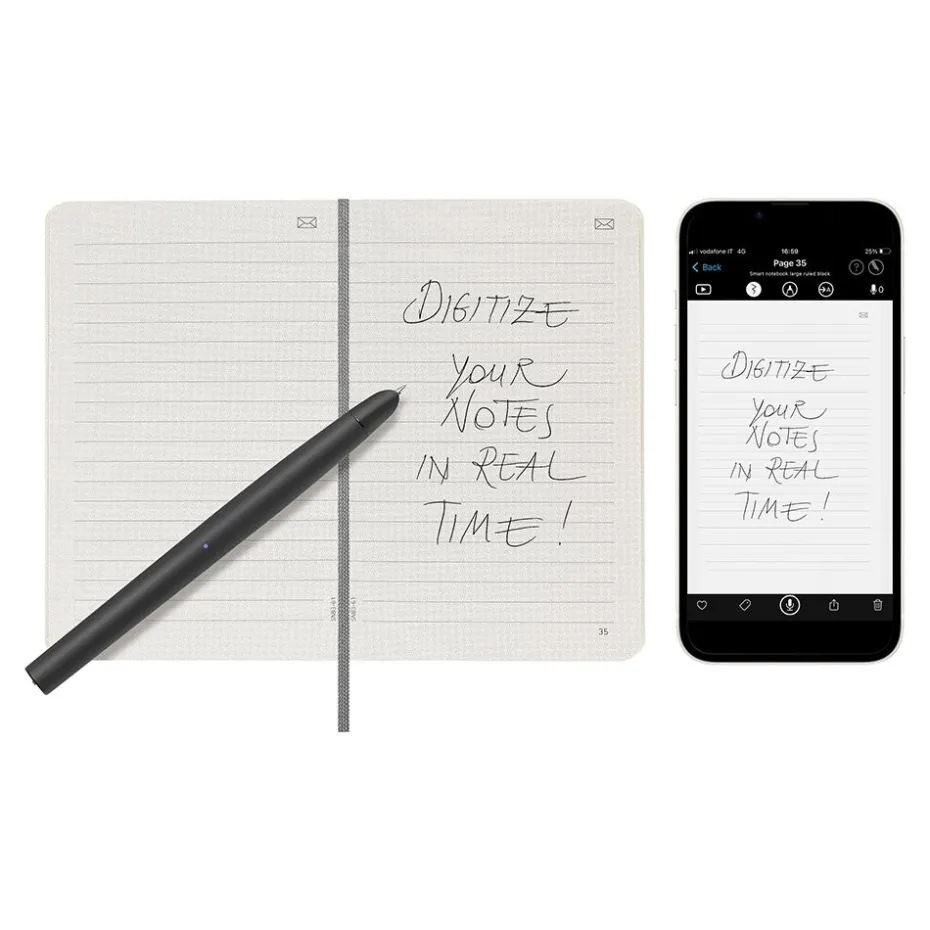 DIGITIZE
YOUR
NOTES
IN REAL
TIME!
SNB3-61
SNB3-61
35
vodafone IT 4G
16:59
25%
Back
Page 35
Smart notebook large ruled black
A
0
DIGITIZE
YOUR
NOTES
IN REAL
TIME!